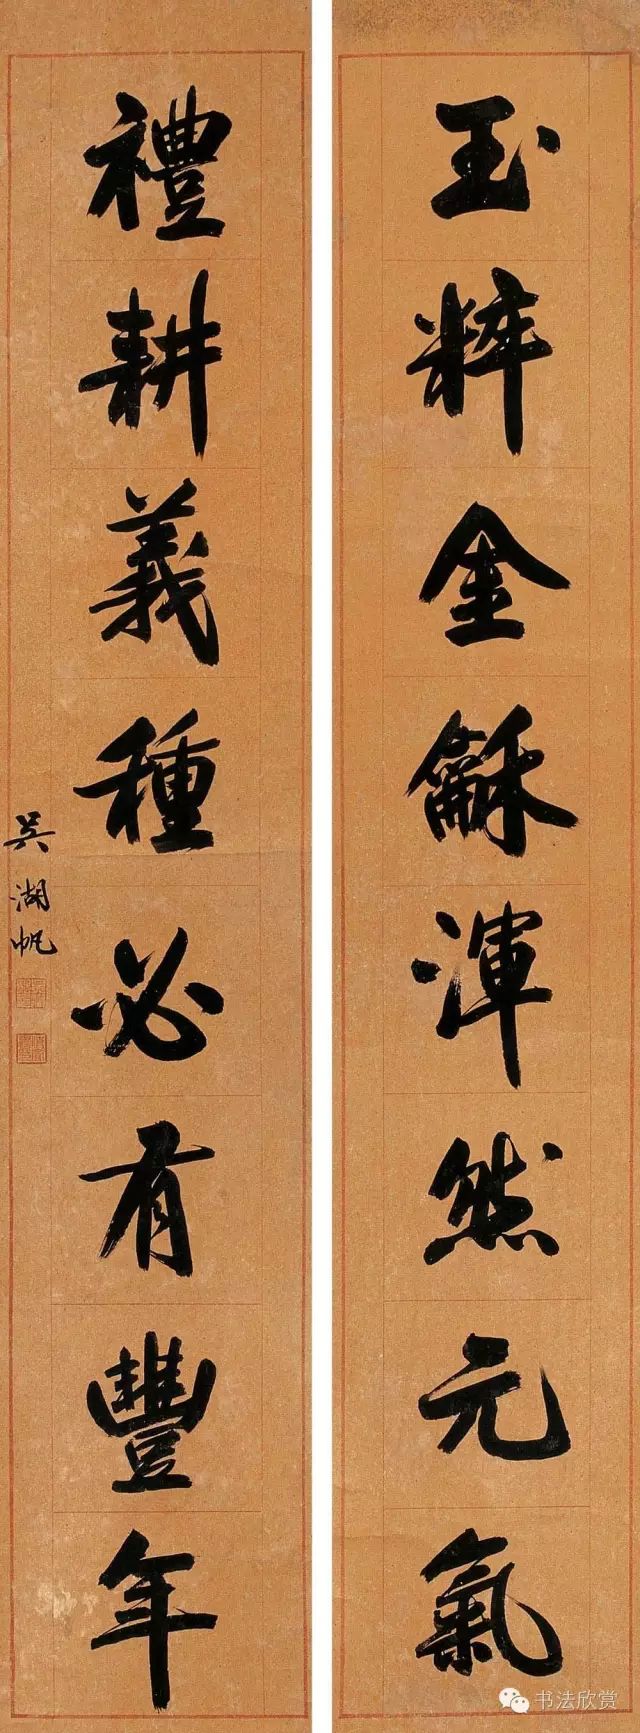 玉粹金龢渾然元氣
禮耕義種必有豐年
吳湖帆
书法欣赏